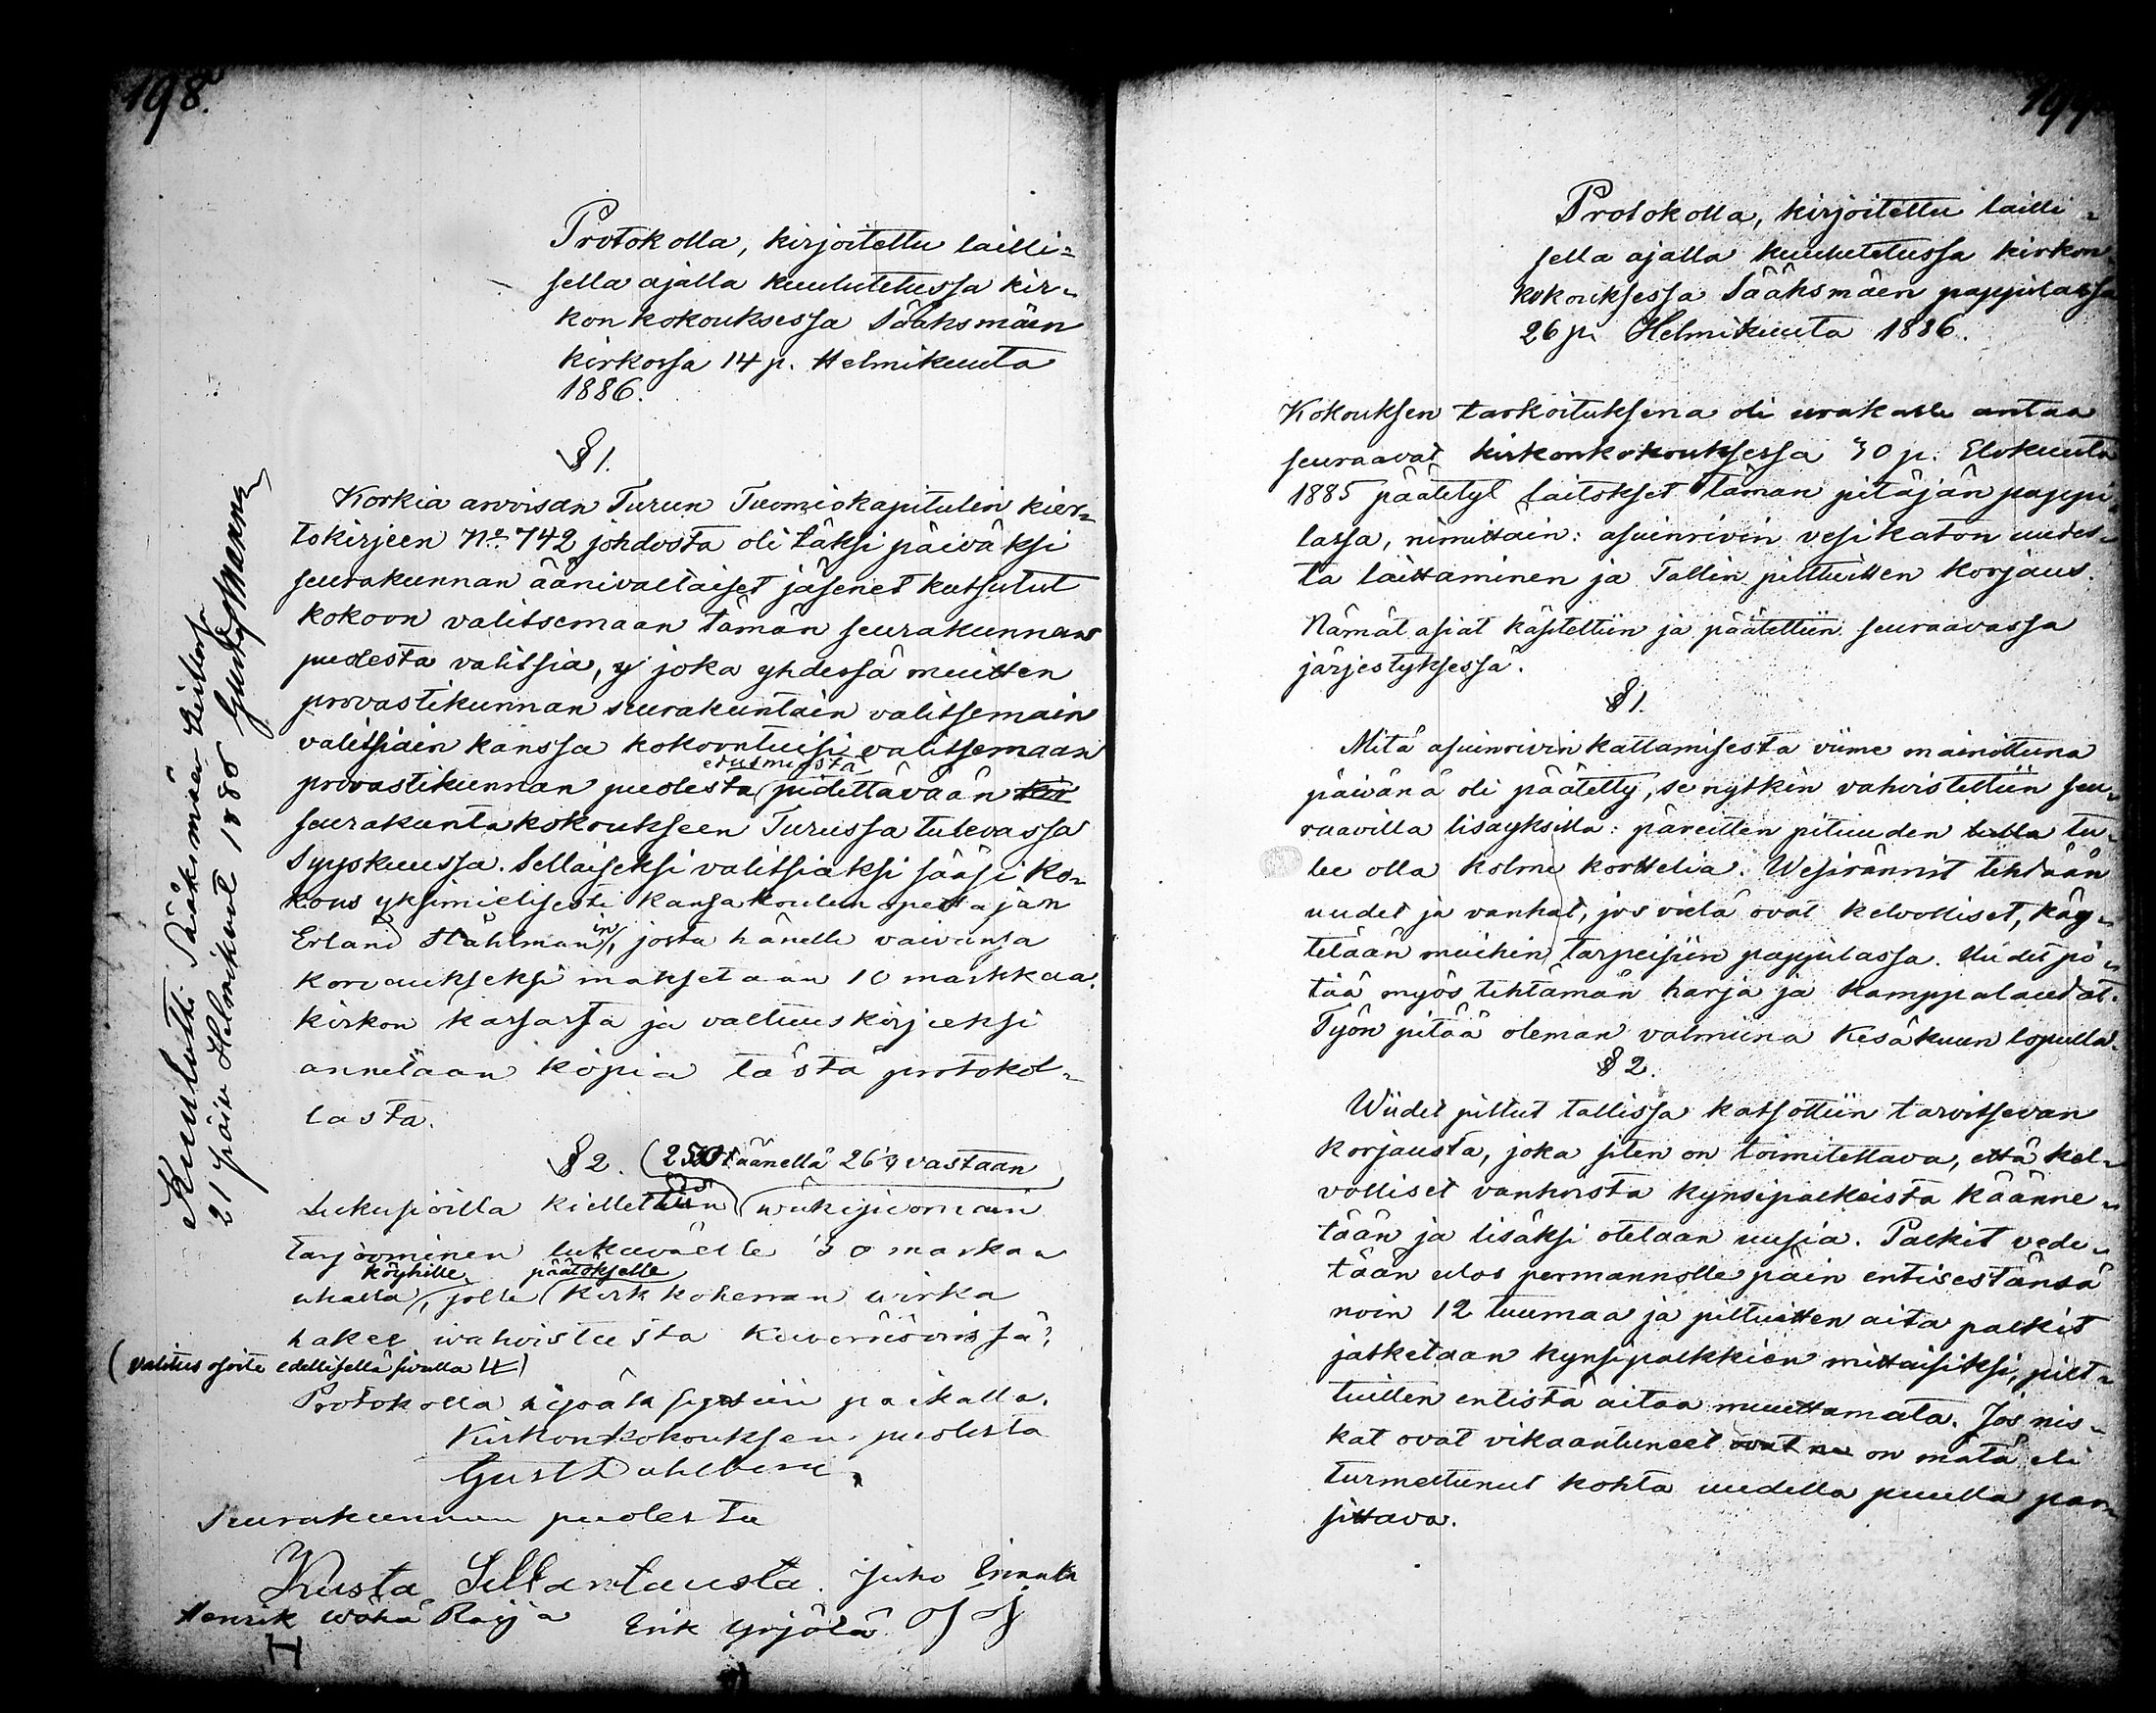 198.
Protokolla, kirjoitettu lailli-
sella ajalla kuulutetussa kir-
kon kokouksessa Sääksmäen
kirkossa 14 p. Helmikuuta
1886.
§ 1.
Korkia arvoisan Turun Tuomiokapitulin kier-
tokirjeen No 742 johdosta oli täksi päiväksi
seurakunnan äänivaltaiset jäsenet kutsutut
kokoon valitsemaan tämän seurakunnan
puolesta valitsia, joka yhdessä muitten
provastikunnan seurakuntain valitsemain
valitsiain kanssa kokoontuisi valitsemaan
edusmiestä
provastikunnan puolesta pidettävään
seurakunta kokoukseen Turussa tulevassa
Syyskuussa. Sellaiseksi valitsiaksi sääsi ko-
kous yksimielisesti kansakoulun opettajan
Erland Ståhlman'in, josta hänelle vaivansa
korvaukseksi maksetaan 10 markkaa
kirkon kassasta ja valtuuskirjeeksi
annetaan kopia tästä protokol-
lasta.
§ 2. (250 äänellä 263 vastaan
Lukusioilla kiellettiin wäkijuomain
tarjoominen lukuväelle 30 markan
köyhille päätökselle
uhalla, jolle kirkkoherran wirka
hakee wahvistusta Kuvernöörissä?
(valitus osoite edellisellä sivulla #)
Protokolla
paikalla.
Kirkonkokouksen puolesta
Gust Dahlberg
Seurakunnan puolesta
Kusta Sillantausta. Juho
Henrik Wähä Raija Erik Yrjölä
Kuulutti Sääksmäen kirkossa
21 päiv Helmikuut 1886
Protokolla, kirjoitettu lailli-
sella ajalla kuulutetussa kirkon
kokouksessa Sääksmäen pappilassa
26 p. Helmikuuta 1886.
Kokouksen tarkoituksena oli urakalle antaa
seuraavat kirkonkokouksessa 30 p. Elokuuta
1885 päätetyt laitokset tämän pitäjän pappi-
lassa, nimittäin: asuinrivin vesikaton uudes-
ta laittaminen ja Tallin pilttuitten korjaus.
Nämät asiat käsiteltiin ja päätettiin seuraavassa
järjestyksessä.
§ 1.
Mitä asuinrivin kattamisesta viime mainittuna
päivänä oli päätetty, se nytkin vahvistettiin seu-
raavilla lisäyksillä: päreitten pituuden tu-
lee olla kolme korttelia. Wesirännit tehdään
uudet ja vanhat, jos vielä ovat kelvolliset, käy-
tetään muihin tarpeisiin pappilassa. Uudet pi-
tää myös tehtämän harja ja kamppalaudat.
Työn pitää oleman valmiina Kesäkuun lopulla.
§ 2.
Wiidet piltut tallissa katsottiin tarvitsevan
korjausta, joka siten on toimitettava, että kel-
volliset vanhoista kynsipalkeista känne-
tään ja lisäksi otetaan uusia. Palkit vede-
tään ulos permannolle päin entisestänsä
noin 12 tuumaa ja pilttuitten aita palkit
jatketaan kynsipalkkien mittaisiksi, pilt-
tuitten entistä aitaa muuttamata. Jos nis-
kat ovat vikaantuneet on mätä eli
turmeltunut kohta uudella puulla par-
sittava.